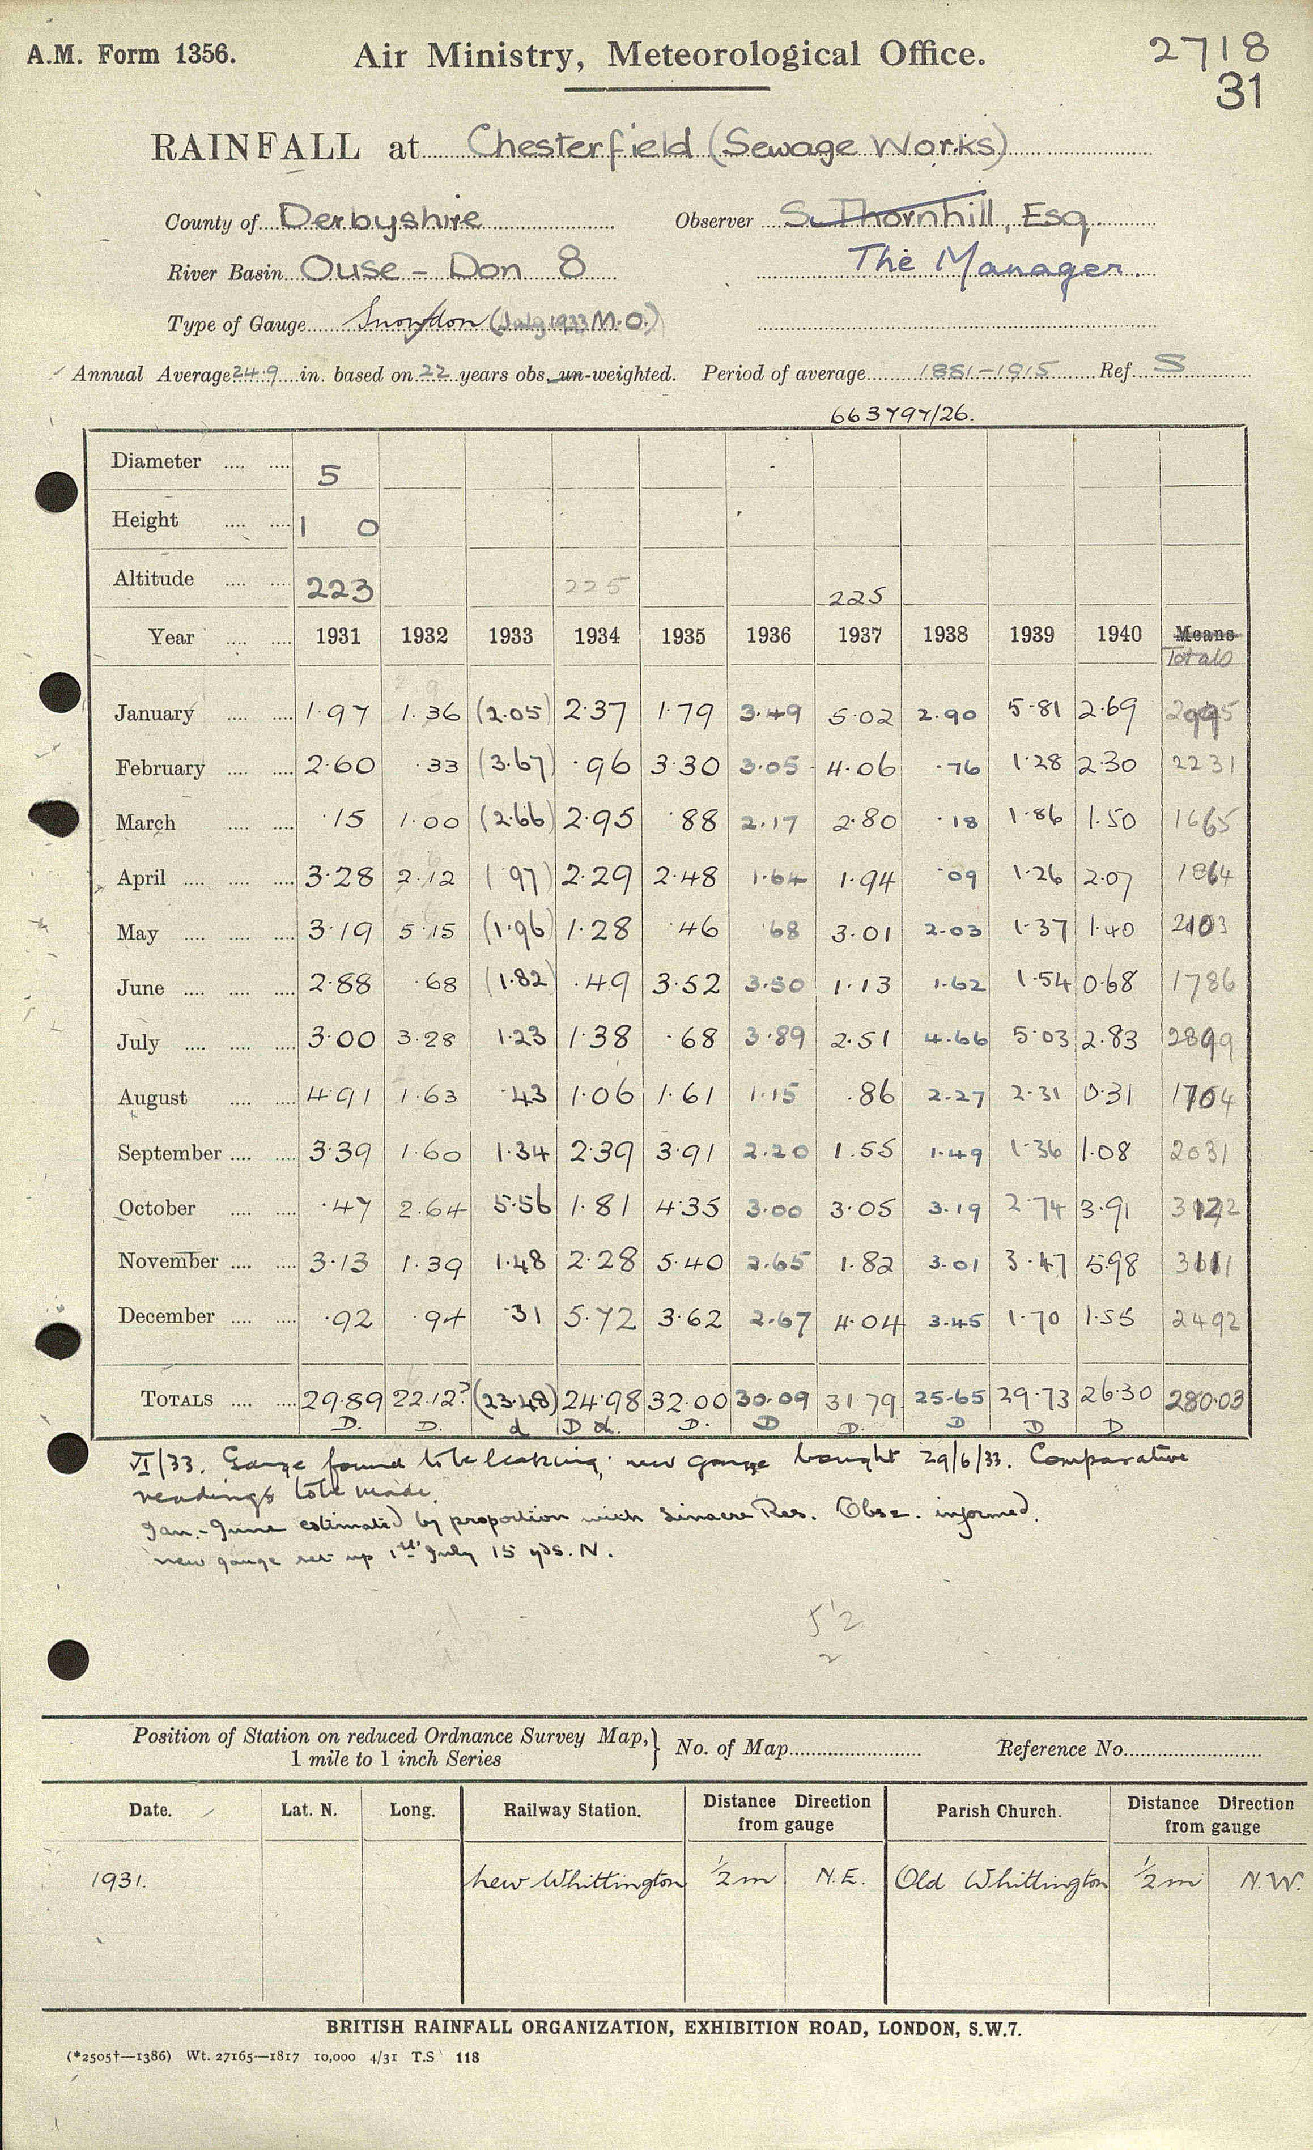 A.M. Form 1356. Air Ministry, Meteorological Office. 2718
31
RAINFALL at Chesterfield (Sewage Works)
County of Derbyshire Observer S. Thornhill, Esq
River Basin Ouse - Don 8 The Manager.
Type of Gauge Snowdon (July 1933 M.O.)
Annual Average 24.9 in. based on 22 years obs. un-weighted. Period of average 1881-1915 Ref. S
663797/26.
Diameter 5
Height 1 0
Altitude 223 225 225
Year 1931 1932 1933 1934 1935 1936 1937 1938 1939 1940 Means
Totals
January 1.97 1.36 (2.05) 2.37 1.79 3.49 5.02 2.90 5.81 2.69
February 2.60 .33 (3.67) .96 3.30 3.05 4.06 .76 1.28 2.30 2231
March .15 1.00 (2.66) 2.95 .88 2.17 2.80 .18 1.86 1.50 1665
April 3.28 2.12 (.97) 2.29 2.48 1.64 1.94 .09 1.26 2.07 1864
May 3.19 5.15 (1.96) 1.28 .46 .68 3.01 2.03 1.37 1.40 2103
June 2.88 .68 (1.82) .49 3.52 3.50 1.13 1.62 1.54 0.68 1786
July 3.00 3.28 1.23 1.38 .68 3.89 2.51 4.66 5.03 2.83
August 4.91 1.63 .43 1.06 1.61 1.15 .86 2.27 2.31 0.31
September 3.39 1.60 1.34 2.39 3.91 2.20 1.55 1.49 1.36 1.08 2031
October .47 2.64 5.56 1.81 4.35 3.00 3.05 3.19 2.74 3.91
November 3.13 1.39 1.48 2.28 5.40 2.65 1.82 3.01 3.47 5.98
December .92 .94 .31 5.72 3.62 2.67 4.04 3.45 1.70 1.55 2492
TOTALS 29.89 22.12? (23.48) 24.98 32.00 30.09 31.79 25.65 29.73 26.30 280.03
D. D. d D d. D. D D. D D D
VI/33. Gauge found to be leaking; new gauge bought 29/6/33. Comparative
readings to be made.
Jan.-June estimated by proportion with Linacre Res. Obsr. informed.
New gauge set up 1st July 15 yds. N.
Position of Station on reduced Ordnance Survey Map,
1 mile to 1 inch Series } No. of Map Reference No.
Date. Lat. N. Long. Railway Station. Distance Direction from gauge Parish Church. Distance Direction from gauge
1931. New Whittington 1/2 m N.E. Old Whittington 1/2 m N.W.
BRITISH RAINFALL ORGANIZATION, EXHIBITION ROAD, LONDON, S.W.7.
(*2505†—1386) Wt. 27165—1817 10,000 4/31 T.S 118